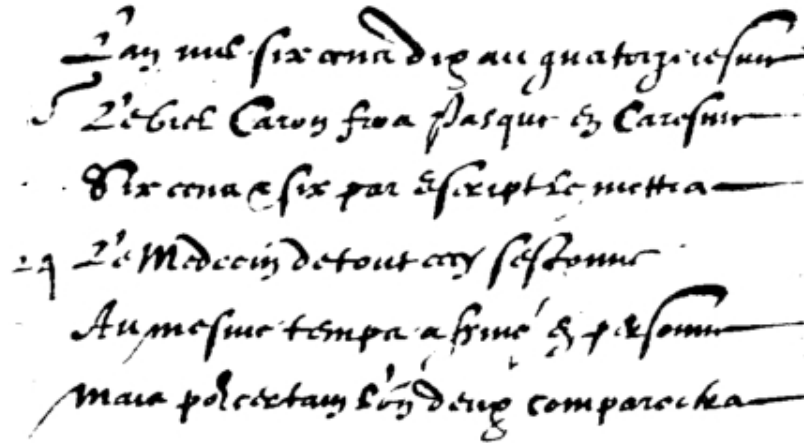 L'an mil six cens dix au quatorziesme
Le viel Caron fera Pasque en Caresme
Six cens & six par escript le mettra
Le Medecin de tout cecy s'estonne
Au mesme temps assiné en personne
Mais pour certain l'ung deux comparoistra